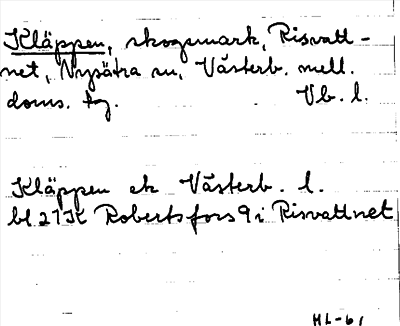 Kläppen, skogsmark, Risvatt-
net, Nysätra sn, Västerb. mell.
doms. tg. Vb. l.
Kläppen ek Västerb. l.
bl 21K Robertsfors 9 i Risvattnet
HL-61